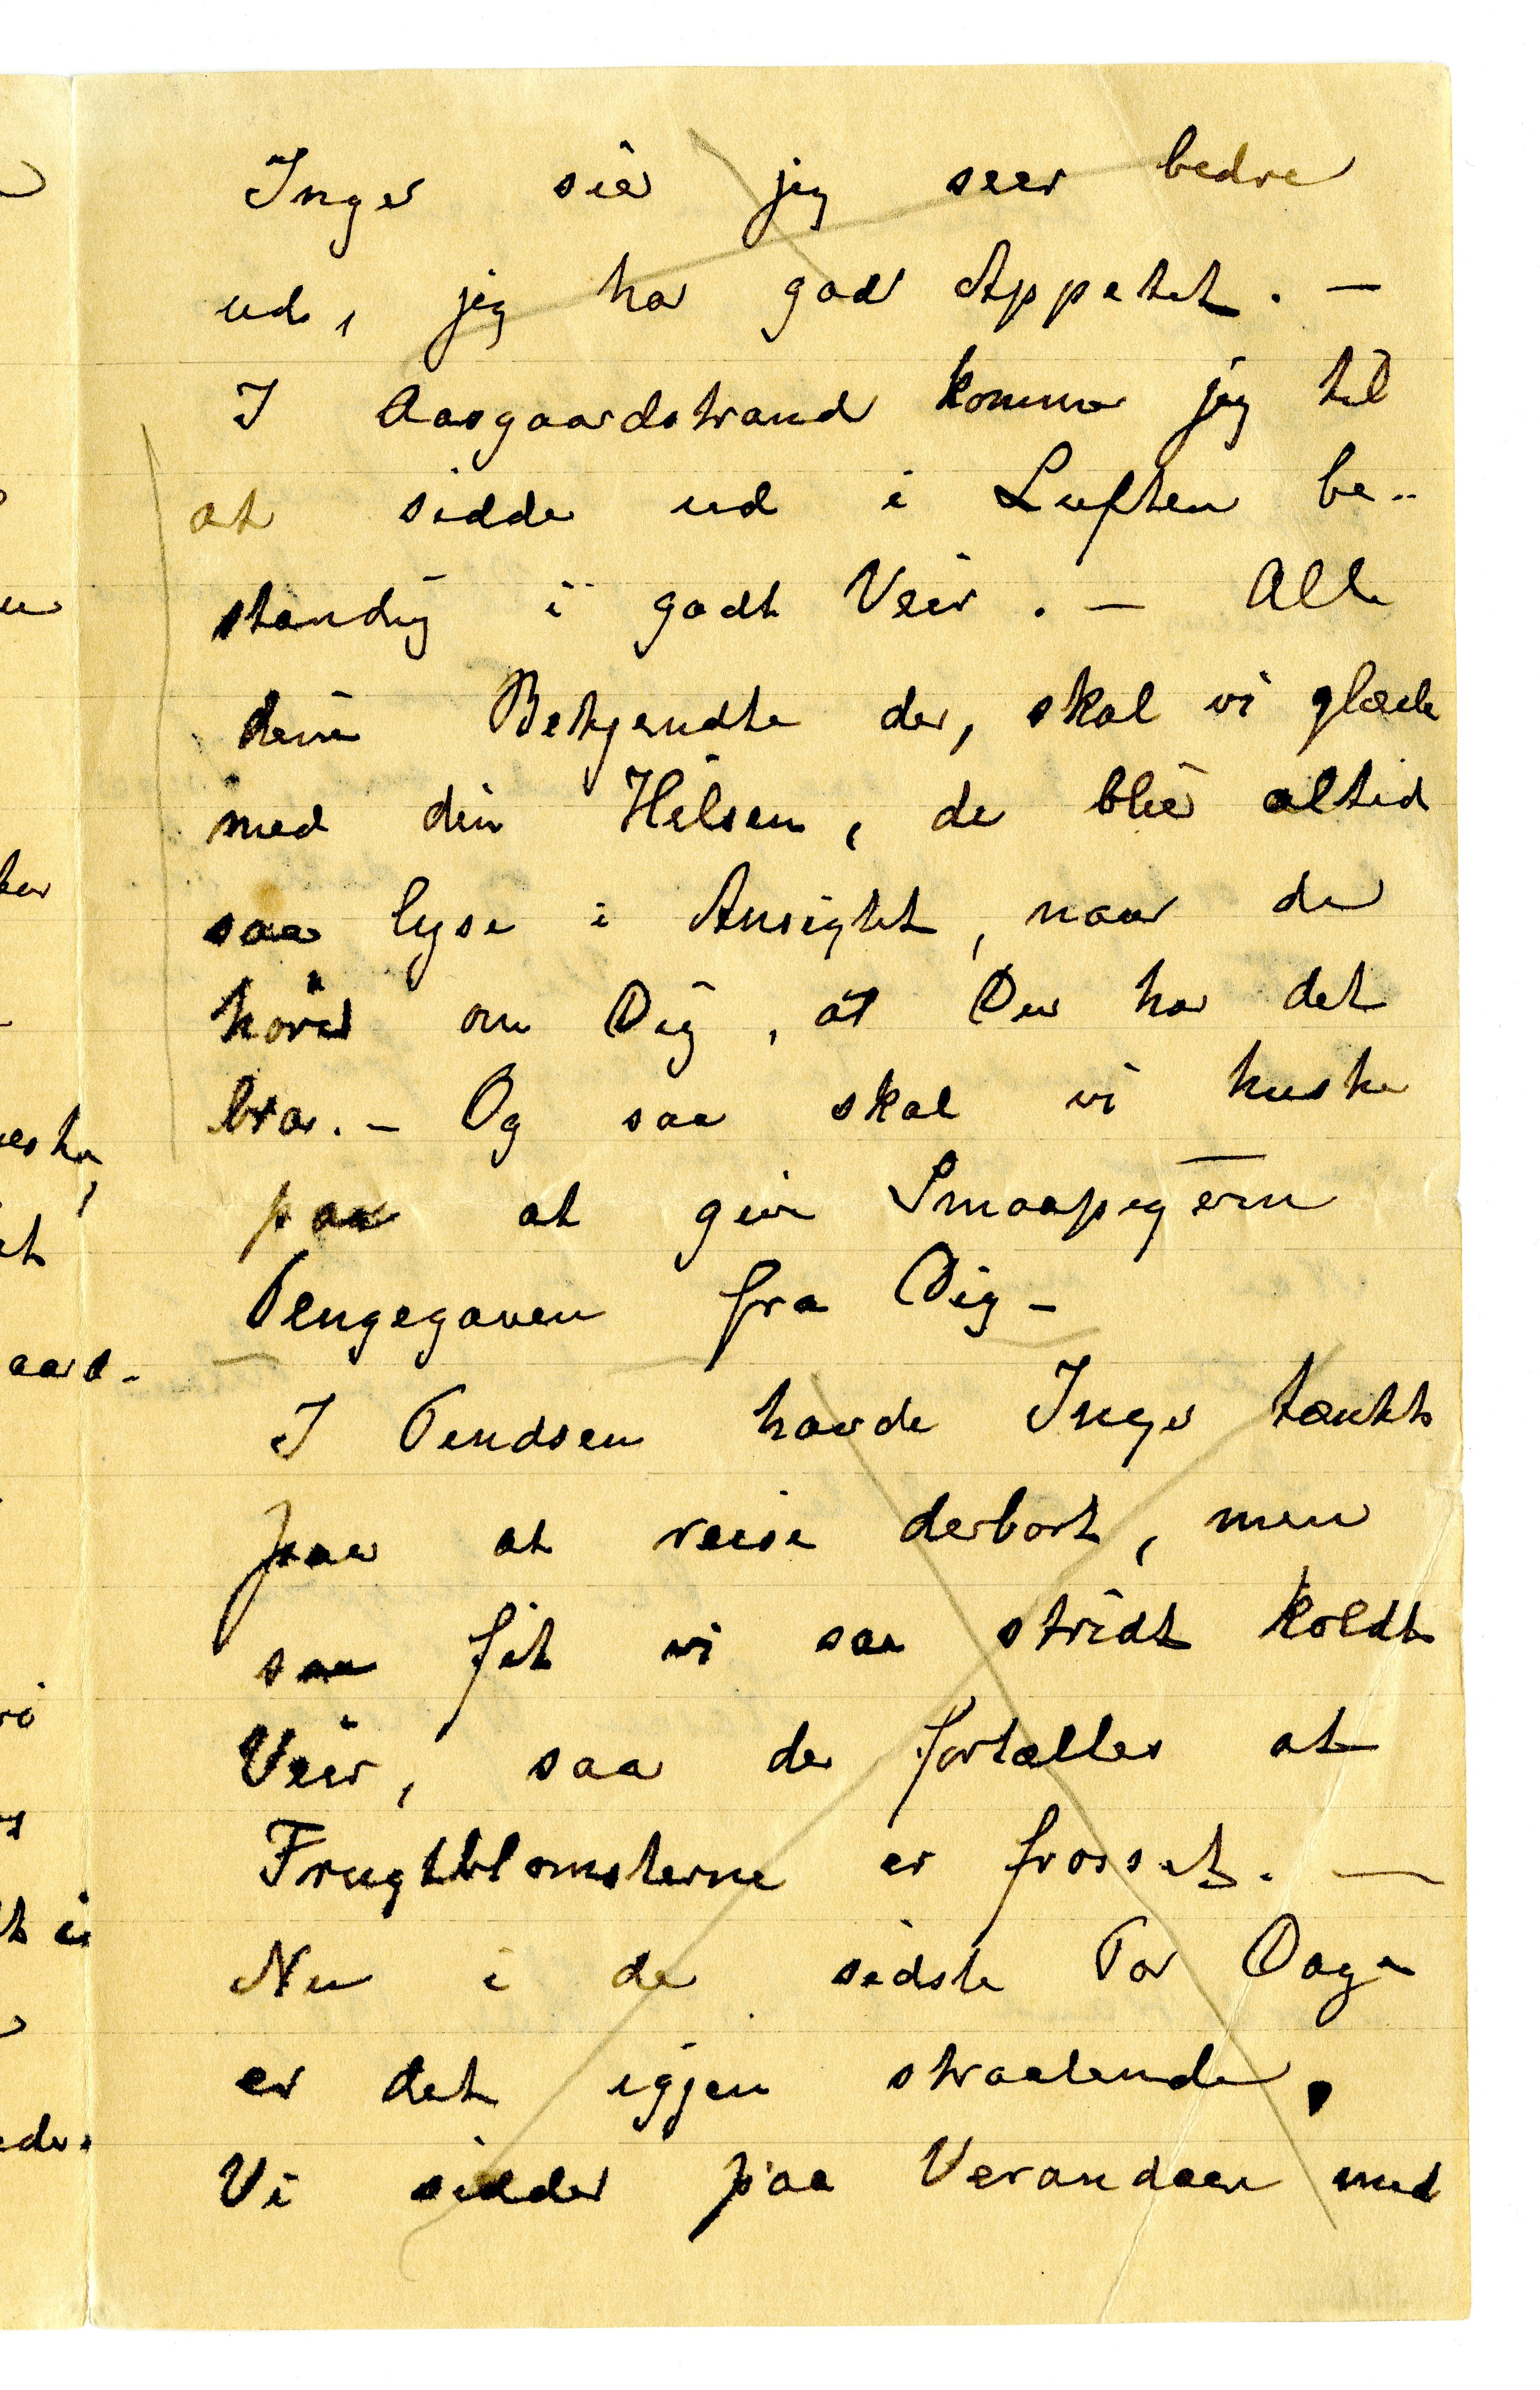 Inger sier jeg seer bedre
ud, jeg har god Appetit. —
I Aasgaardstrand kommer jeg til
at sidde ud i Luften be-
standig i godt Veir. — Alle
dine Bekjendte der, skal vi glæde
med din Hilsen, de blir altid
saa lyse i Ansigtet, naar de
hører om Dig, at Du har det
bra. — Og saa skal vi huske
paa at give Smaapigern
Pengegaven fra Dig —
I Pindsen havde Inger tænkt
paa at reise derbort, men
saa fik vi saa stridt koldt
Veir, saa der fortælles at
Frugtblomsterne er frosset. —
Nu i de sidste Par Dage
er det igjen straalende.
Vi sidder paa Verandaen med